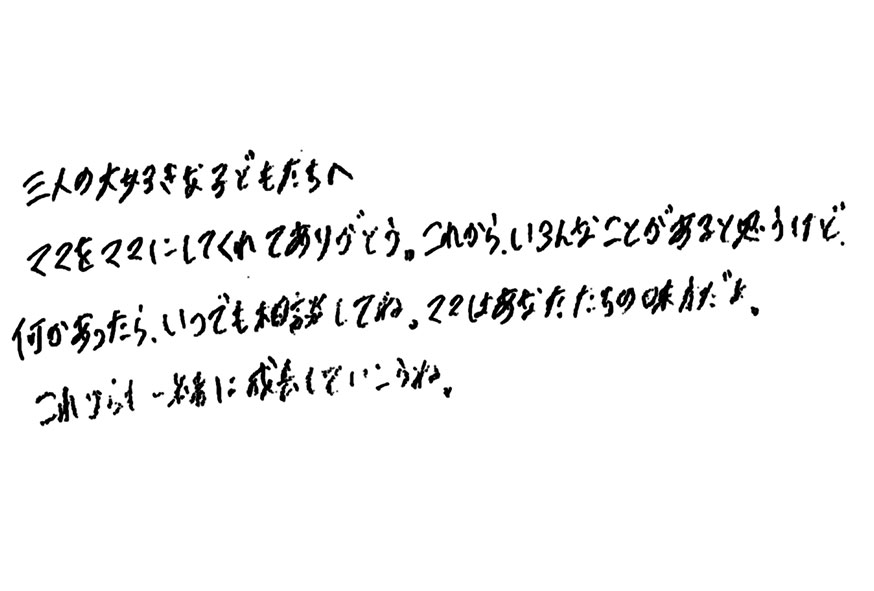 三人の大好きな子どもたちへ
ママをママにしてくれてありがとう。これから、いろんなことがあると思うけど、
何かあったら、いつでも相談してね。ママはあなたたちの味方だよ。
これからも一緒に成長していこうね。